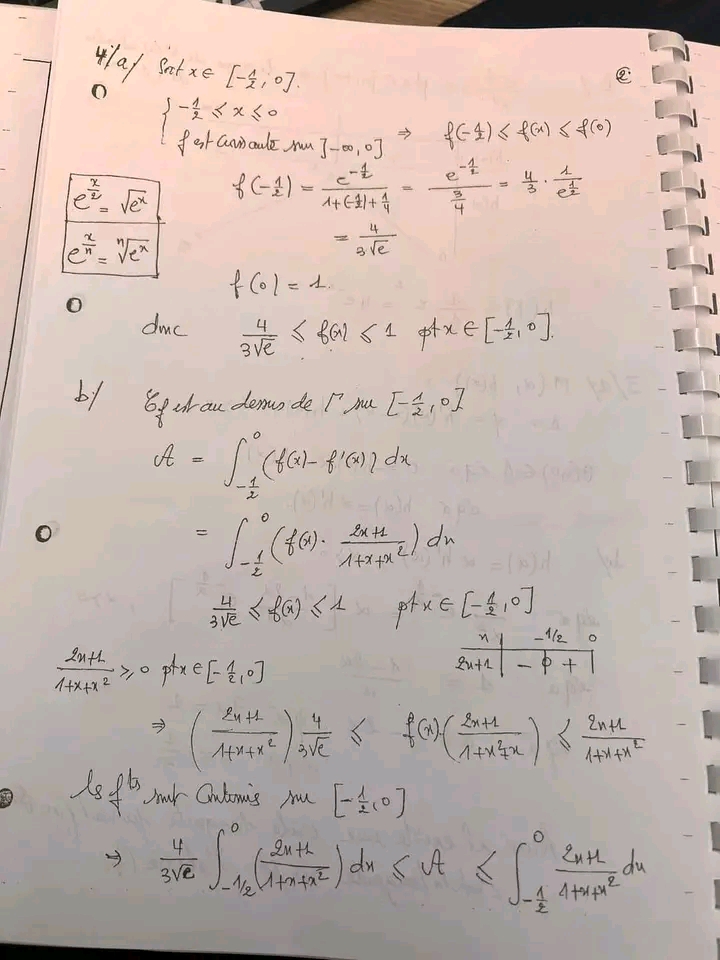 4/a/ Soit x ∈ [-1/2, 0].
2.
{ -1/2 ⩽ x ⩽ 0
f est croissante sur ]-∞, 0] ⇒ f(-1/2) ⩽ f(x) ⩽ f(0)
f(-1/2) = e^{-1/2} / (1+(-1/2)+1/4) = e^{-1/2} / (3/4) = 4/3 · 1/e^{1/2}
e^{x/2} = √(e^x)
= 4/(3√e)
e^{x/n} = ⁿ√(e^x)
f(0) = 1.
donc 4/(3√e) ⩽ f(x) ⩽ 1 pt x ∈ [-1/2, 0].
b/ Cf est au dessus de Γ sur [-1/2, 0]
A = ∫_{-1/2}^{0} (f(x) - f'(x)) dx
= ∫_{-1/2}^{0} (f(x) · (2x+1)/(1+x+x²)) dx
4/(3√e) ⩽ f(x) ⩽ 1 pt x ∈ [-1/2, 0]
x | -1/2 0
(2x+1)/(1+x+x²) ⩾ 0 pt x ∈ [-1/2, 0]
2x+1 | - 0 + |
⇒ ((2x+1)/(1+x+x²)) 4/(3√e) ⩽ f(x)·((2x+1)/(1+x²+x)) ⩽ (2x+1)/(1+x+x²)
les f^{ts} sont continus sur [-1/2, 0]
⇒ 4/(3√e) ∫_{-1/2}^{0} ((2x+1)/(1+x+x²)) dx ⩽ A ⩽ ∫_{-1/2}^{0} (2x+1)/(1+x+x²) dx